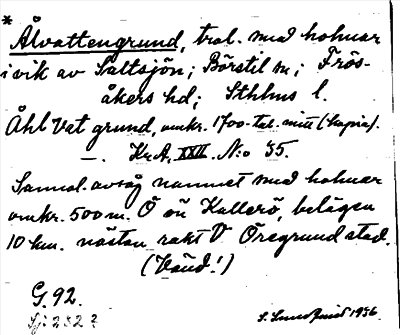 * Ålvattengrund, trol. med holmar
i vik av Saltsjön; Börstil sn; Frös-
åkers hd; Sthlms l.
Åhl Vat grund, omkr. 1700-tal. mitt (kopia).
—. Kr. A. XXII. N:o 35.
Sannol. avsåg namnet med holmar
omkr. 500 m. O om Kallerö, belägen
10 km. nästan rakt V Öregrund stad.
(Vänd!)
G. 92.
Sj: 232?
1936.